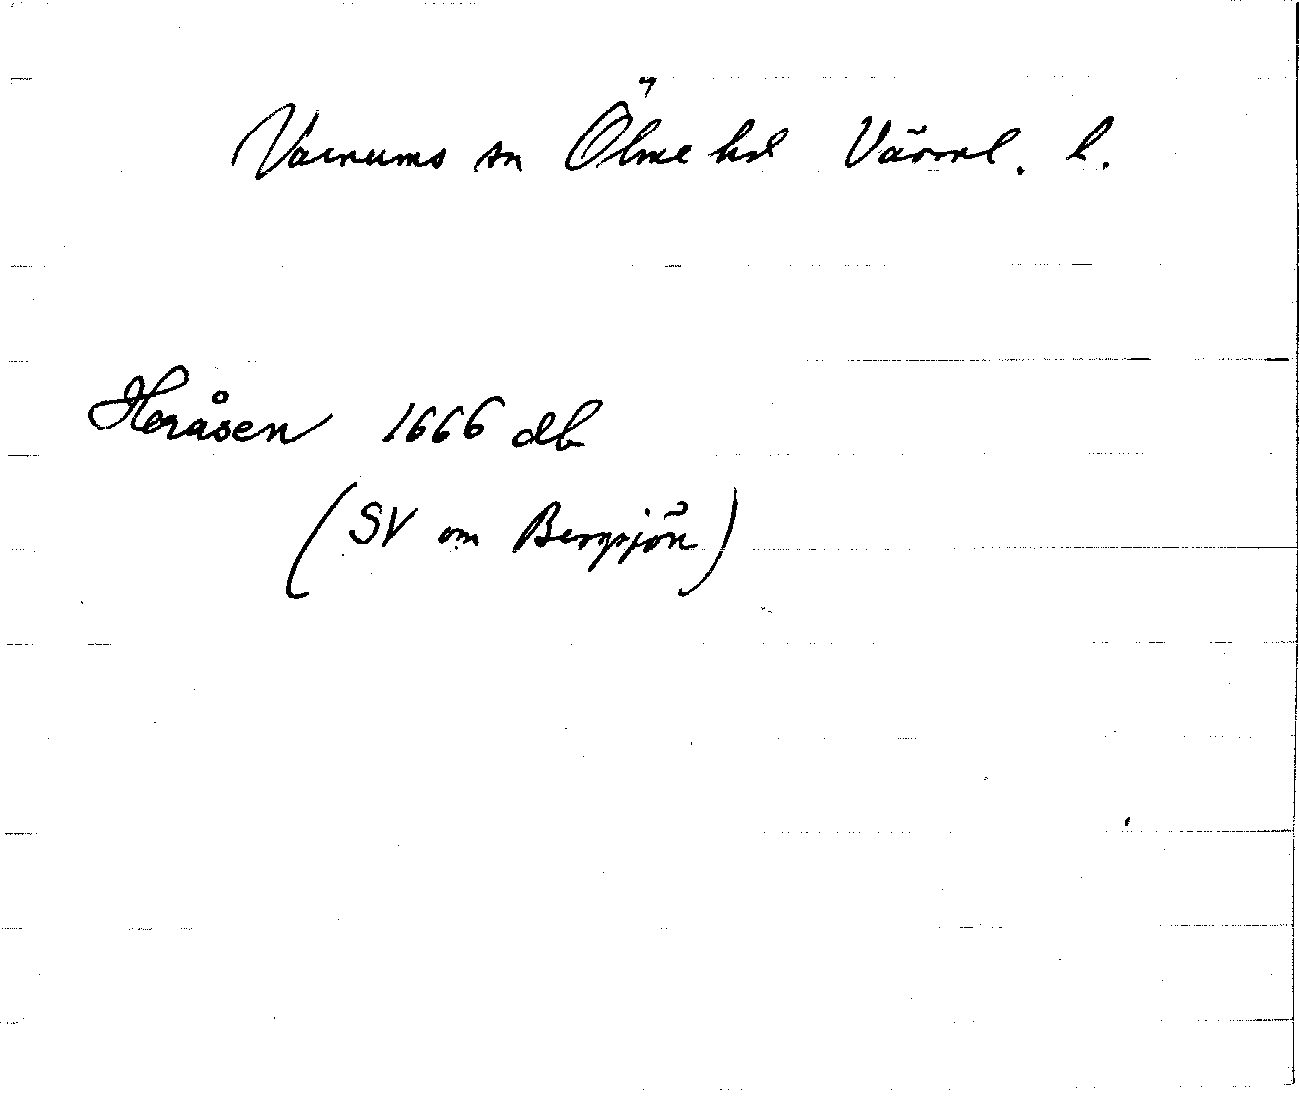 Varnums sn Ölme hd Värml. l.
Heråsen 1666 db
(SV om Bergsjön)